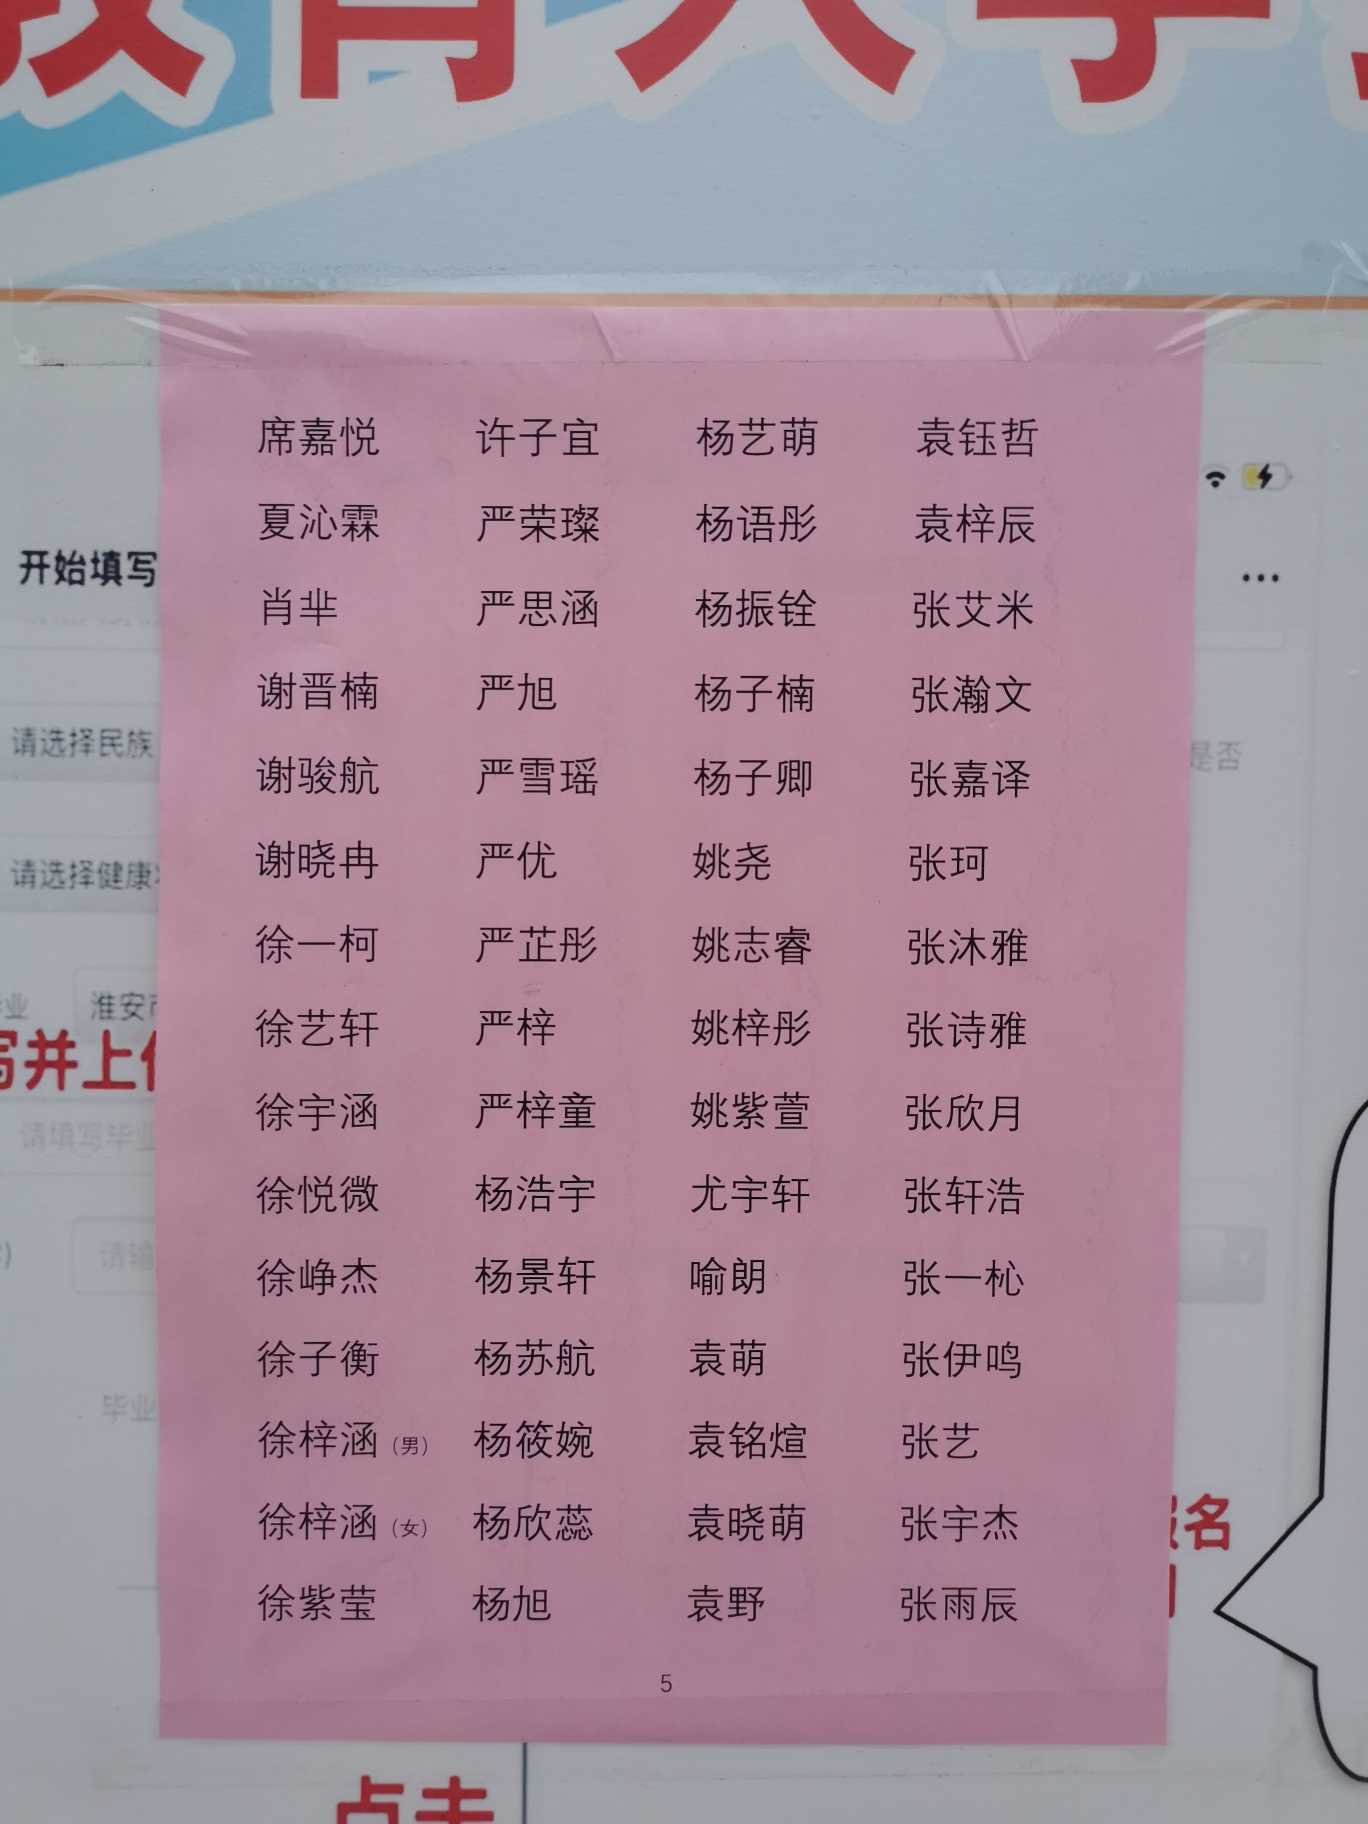 教育入学
席嘉悦 许子宜 杨艺萌 袁钰哲
夏沁霖 严荣璨 杨语彤 袁梓辰
开始填写
肖芈 严思涵 杨振铨 张艾米
谢晋楠 严旭 杨子楠 张瀚文
请选择民族
是否
谢骏航 严雪瑶 杨子卿 张嘉译
谢晓冉 严优 姚尧 张珂
请选择健康
徐一柯 严芷彤 姚志睿 张沐雅
业 淮安市
徐艺轩 严梓 姚梓彤 张诗雅
写并上传
徐宇涵 严梓童 姚紫萱 张欣月
请填写毕业
徐悦微 杨浩宇 尤宇轩 张轩浩
请输
徐峥杰 杨景轩 喻朗 张一杺
徐子衡 杨苏航 袁萌 张伊鸣
毕业
徐梓涵（男） 杨筱婉 袁铭煊 张艺
徐梓涵（女） 杨欣蕊 袁晓萌 张宇杰
报名
徐紫莹 杨旭 袁野 张雨辰
5
点击